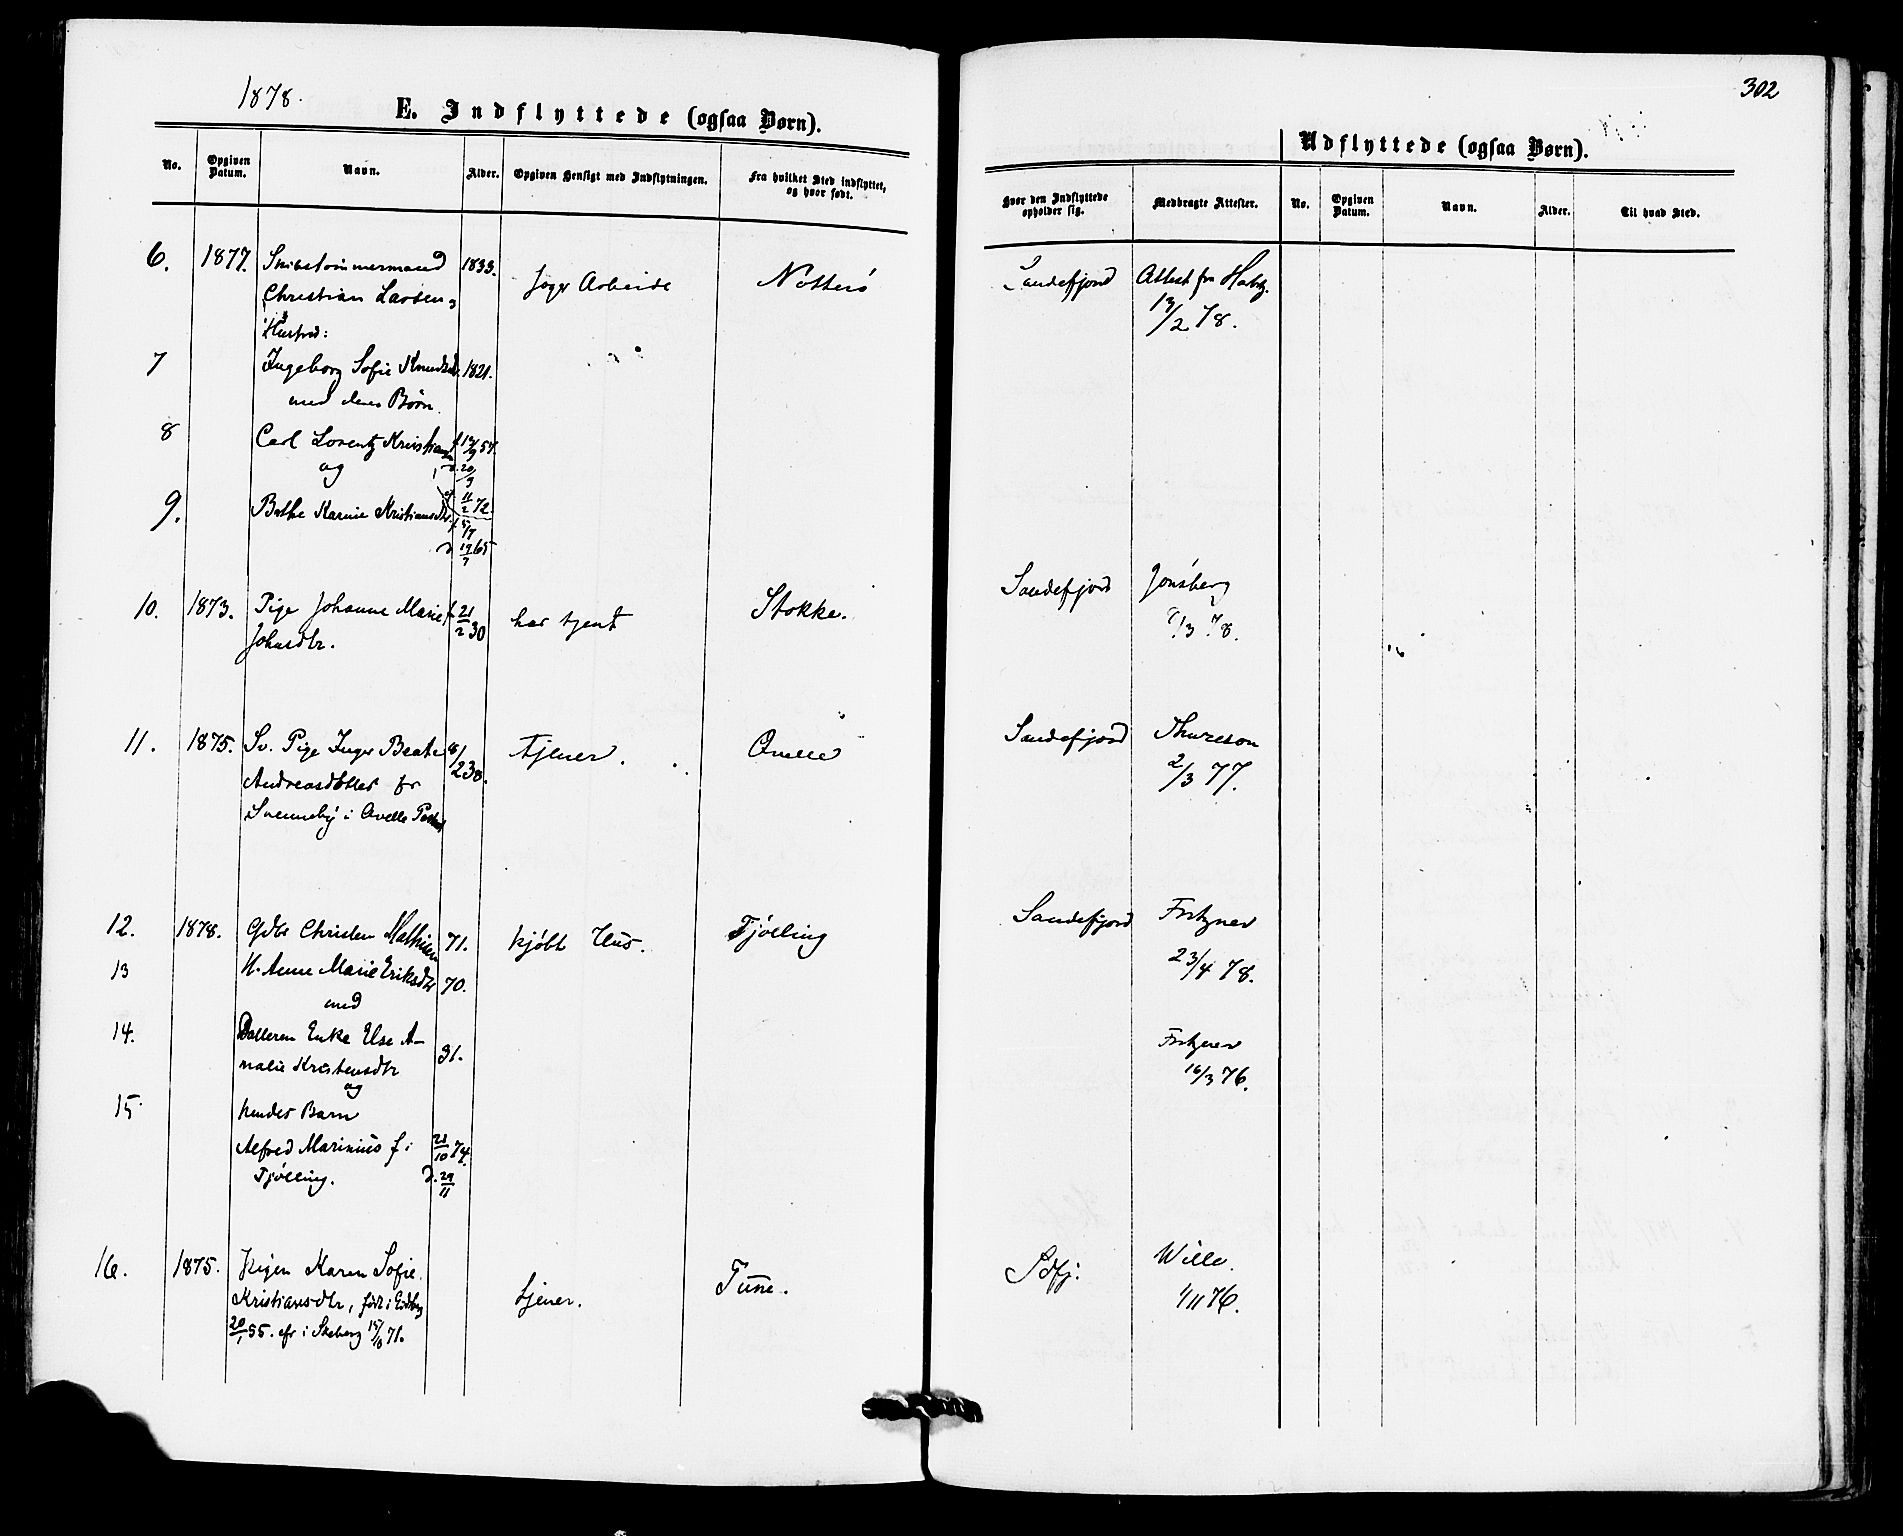 1878.
E. Indflyttede (ogsaa Børn).
No. Opgiven Datum. Navn. Alder. Opgiven Hensigt med Indflytningen. Fra hvilket Sted indflyttet, og hvor født.
6. 1877. Skibstømmermand 1833.
Christian Larsen Søger Arbeide Nøtterø
Hustrud:
7 Ingeborg Sofie Knudsd. 1821.
med deres Børn.
8 Carl Lorentz Kristians f 57.
og
9. Bathe Karine Kristiansdtr. 11/2 72
d 19/7 65
10. 1873. Pige Johanne Marie f 21/2 30 har tjent Stokke.
Johnsdtr.
11. 1875. Sv. Pige Inger Beate 8/2 30. tjener. Onsø
Andreasdotter fr
Svenneby i Qvelle
12. 1878. Gdbr Christen Mathisen 71. kjøbt Hus. Tjølling
13 H. Anne Marie Eriksdtr 70.
med
14. Datteren Enke Else A- 31.
malie Kristensdtr
og
15 hendes Barn
Alfred Marinius f. i 21/10 74.
Tjølling. d. 29/11
16. 1875. Pigen Karen Sofie tjener. Tune.
Kristiansdtr, født i Eidsberg
20/1 55. cfr i Skeberg 15/10 71.
302
Udflyttede (ogsaa Børn).
Hvor den Indflyttede opholder sig. Medbragte Attester. No. Opgiven Datum. Navn. Alder. Til hvad Sted.
Sandefjord Attest fra
13/2 78.
Sandefjord Jonsberg
/3 78.
Sandefjord Thureson
2/3 77.
Sandefjord Fritzner
23/4 78.
Fritzner
16/3 76.
Sdfj. Wille.
1/11 76.